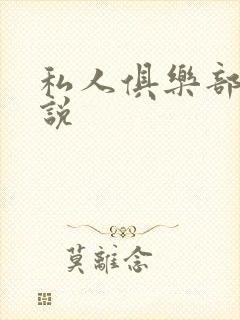 私人俱樂部
說
莫離念